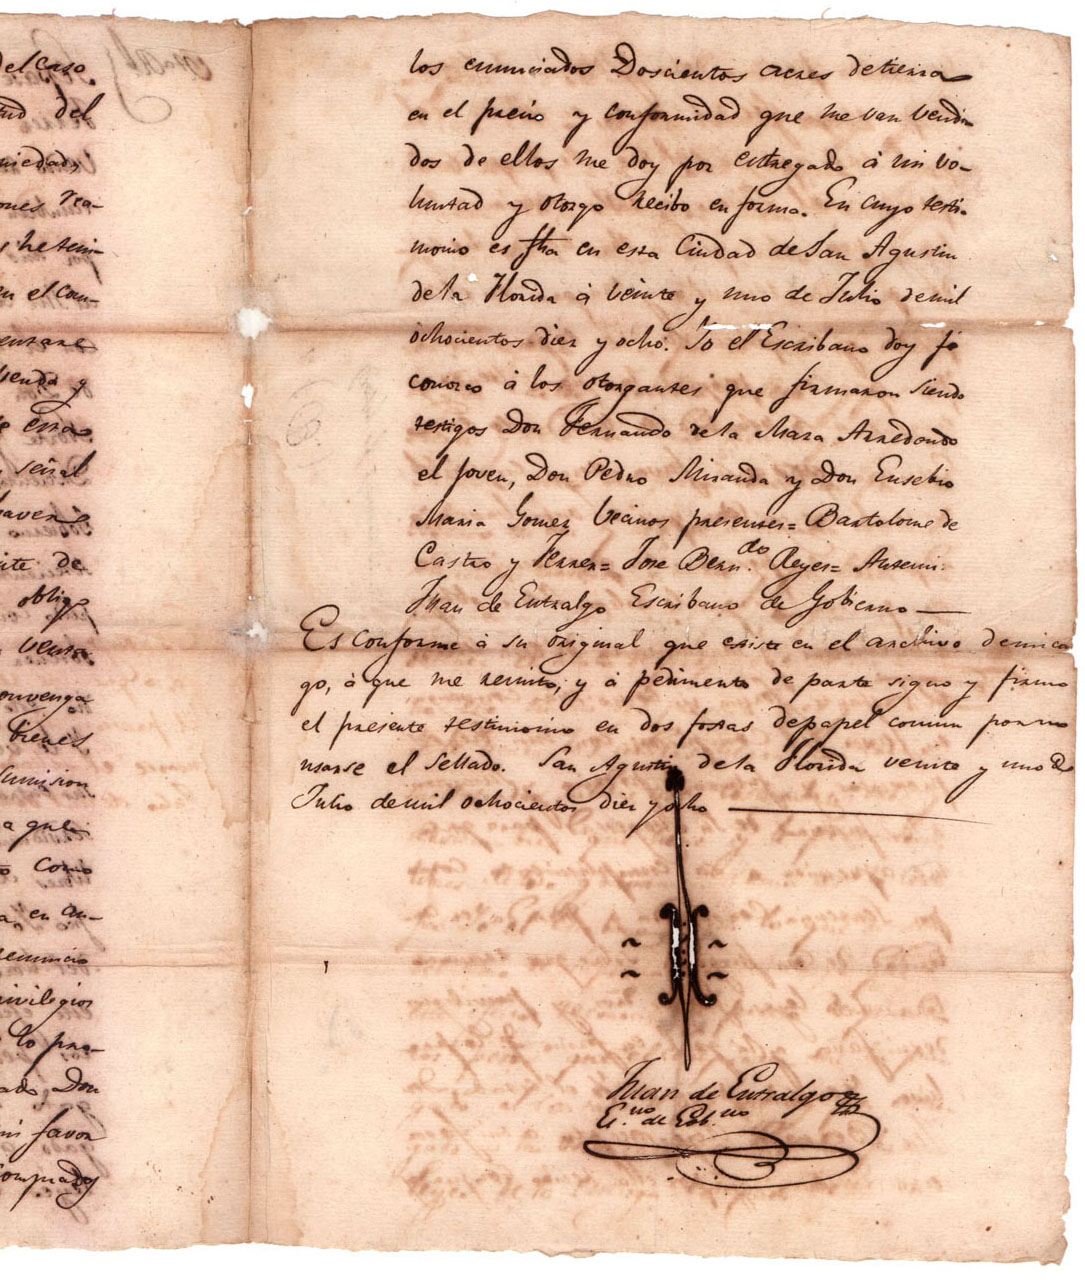 del caso
tud del
niedad,
ones rea-
s he teni-
en el com-
benda y
e essa
señal
haver
ite de
oblig
venta
convenga
bienes
Sumision
a qule
to como
a, en an-
renuncio
privilegios
lo pro-
ado Don
mi favor
comprados
los enunciados Doscientos acres de tierra
en el precio y conformidad que me van vendi-
dos de ellos me doy por entregado á mi vo-
luntad y otorgo recibo en forma. En cuyo testi-
monio es fha en esta Ciudad de San Agustin
de la Florida á veinte y uno de Julio de mil
ochocientos diez y ocho. Yo el Escribano doy fé
conozco á los otorgantes que firmaron siendo
testigos Don Fernando de la Maza Arredondo
el Joven, Don Pedro Miranda y Don Eusebio
Maria Gomez Vecinos presentes= Bartolome de
Castro y Ferrer= Jose Bern.do Reyes= Antemi.
Juan de Entralgo Escribano de Gobierno—
Es conforme á su original que existe en el archivo de mi ca
go, á que me remito, y á pedimento de parte signo y firmo
el presente testimonio en dos foxas de papel comun por no
usarse el Sellado. San Agustin de la Florida veinte y uno de
Julio de mil ochocientos diez y ocho —
Juan de Entralgo
Es.no de Gob.no